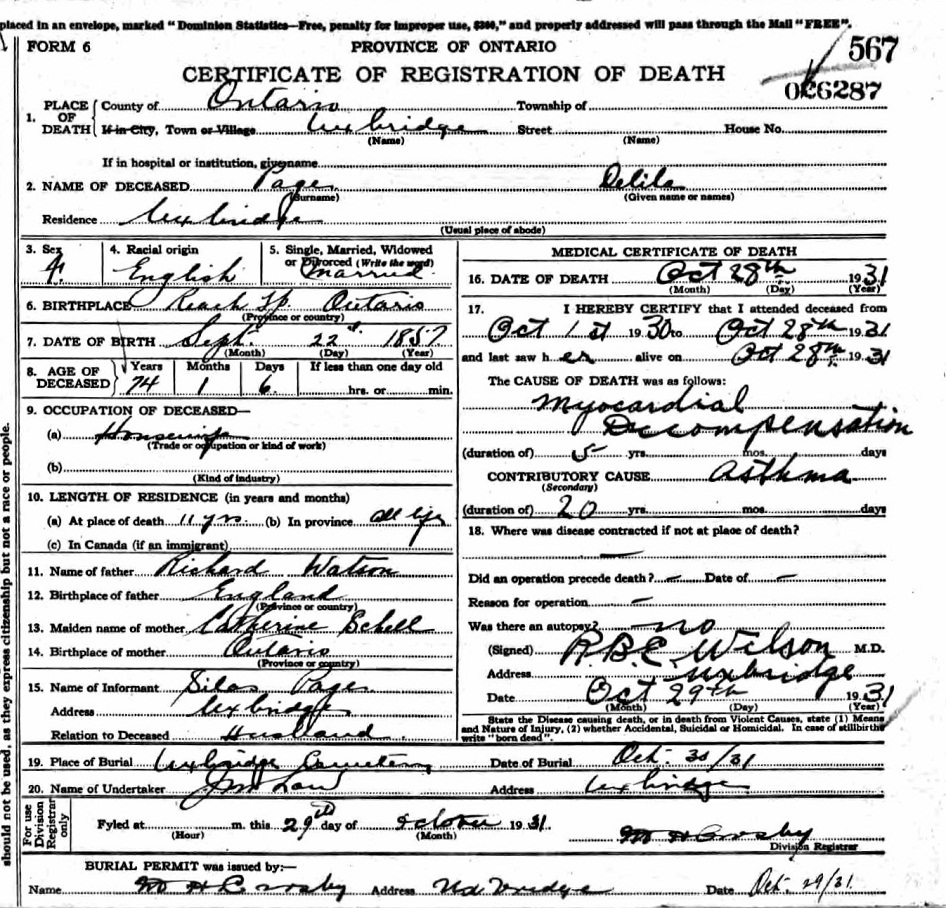 placed in an envelope, marked "Dominion Statistics—Free, penalty for improper use, $300," and properly addressed will pass through the Mail "FREE".
FORM 6 PROVINCE OF ONTARIO 567
CERTIFICATE OF REGISTRATION OF DEATH
026287
1. PLACE OF DEATH County of Ontario Township of
If in City, Town or Village Uxbridge Street House No.
(Name) (Name)
If in hospital or institution, give name
2. NAME OF DECEASED Page Delila
(Surname) (Given name or names)
Residence Uxbridge
(Usual place of abode)
3. Sex F. 4. Racial origin English 5. Single, Married, Widowed or Divorced (Write the word) Married
6. BIRTHPLACE Reach Tp. Ontario
(Province or country)
7. DATE OF BIRTH Sept. 22 1857
(Month) (Day) (Year)
8. AGE OF DECEASED Years Months Days If less than one day old
74 1 6 hrs. or min.
9. OCCUPATION OF DECEASED—
(a) Housewife
(Trade or occupation or kind of work)
(b)
(Kind of industry)
10. LENGTH OF RESIDENCE (in years and months)
(a) At place of death 11 yrs. (b) In province all life
(c) In Canada (if an immigrant)
11. Name of father Richard Watson
12. Birthplace of father England
(Province or country)
13. Maiden name of mother Catherine Schell
14. Birthplace of mother Ontario
(Province or country)
15. Name of Informant Silas Page
Address Uxbridge
Relation to Deceased Husband
MEDICAL CERTIFICATE OF DEATH
16. DATE OF DEATH Oct 28th 1931
(Month) (Day) (Year)
17. I HEREBY CERTIFY that I attended deceased from
Oct 1st 1930 to Oct 28th 1931
and last saw her alive on Oct 28th 1931
The CAUSE OF DEATH was as follows:
Myocardial
Decompensation
(duration of) 5 yrs. mos. days
CONTRIBUTORY CAUSE Asthma
(Secondary)
(duration of) 20 yrs. mos. days
18. Where was disease contracted if not at place of death?
—
Did an operation precede death? — Date of —
Reason for operation —
Was there an autopsy? no
(Signed) Wilson M.D.
Address Uxbridge
Date Oct 29th 1931
(Month) (Day) (Year)
State the Disease causing death, or in death from Violent Causes, state (1) Means
and Nature of Injury, (2) whether Accidental, Suicidal or Homicidal. In case of stillbirths
write "born dead".
19. Place of Burial Uxbridge Cemetery Date of Burial Oct. 30/31
20. Name of Undertaker Low Address Uxbridge
For use Division Registrar only
Fyled at m. this 29th day of October 1931
(Hour) (Month)
M H Crosby
Division Registrar
BURIAL PERMIT was issued by:—
Name M H Crosby Address Uxbridge Date Oct. 29/31
should not be used, as they express citizenship but not a race or people.